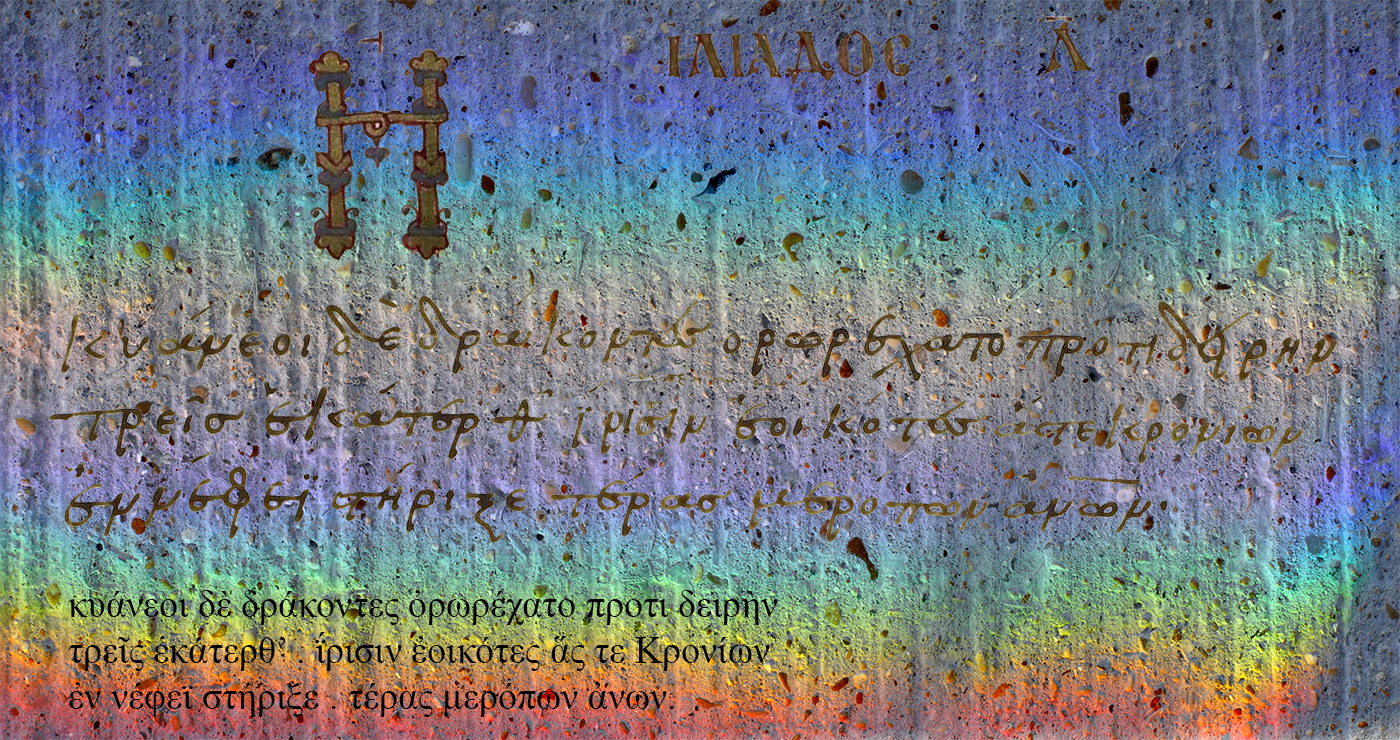 Η ΙΛΙΑΔΟΣ Λ
κυάνεοι δὲ δράκοντες ὀρωρέχατο προτὶ δειρὴν
τρεῖς ἑκάτερθ' ἴρισιν ἐοικότες ἅς τε κρονίων
ἐν νέφεϊ στήριξε τέρας μερόπων ἀνων.
κυάνεοι δὲ δράκοντες ὀρωρέχατο προτι δειρὴν
τρεῖς ἑκάτερθ’ . ἴρισιν ἐοικότες ἅς τε Κρονίων
ἐν νέφεϊ στήριξε . τέρας μερόπων ἄνων.